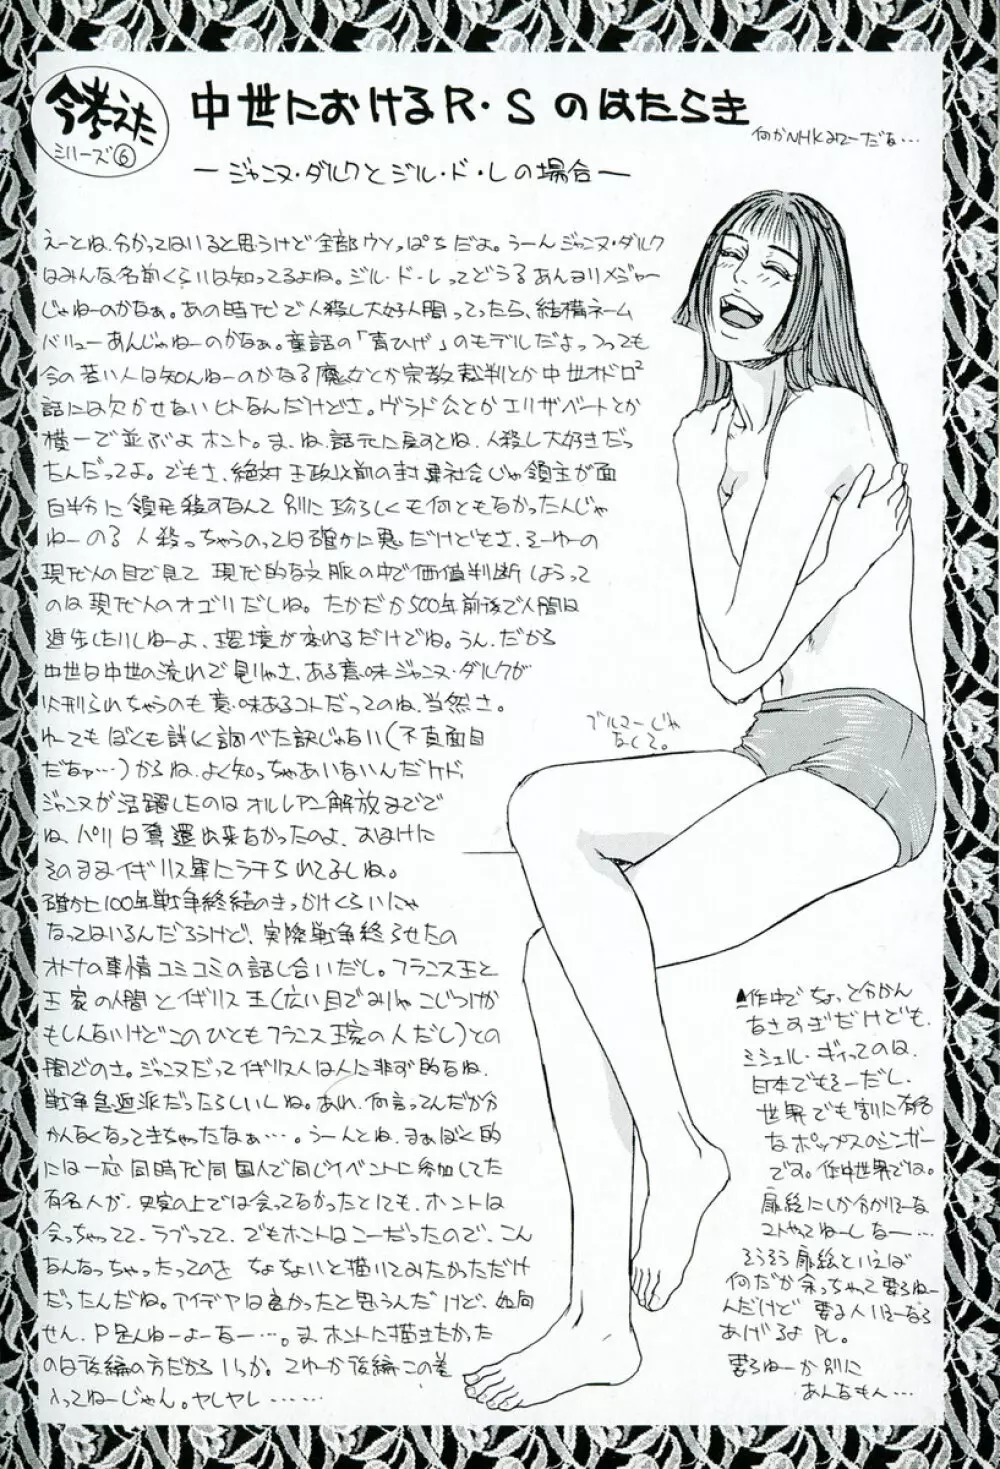 今考えた
シリーズ⑥
中世におけるR・Sのはたらき
何かNHKみてーだな…
ージャンヌ・ダルクとジル・ド・レの場合ー
えーとね、分かってはいると思うけど全部ウソっぱちだよ。うーんジャンヌ・ダルク
はみんな名前くらいは知ってるよね。ジル・ド・レってどうなあんまりメジャー
じゃねーのかなぁ。あの時代で人殺し大好人間ってったら、結構ネーム
バリューあんじゃねーのかなぁ。童話の「青ひげ」のモデルだよっつっても
今の若い人は知んねーのかなる魔女とか宗教裁判とか中世オドロ²
話には欠かせないヒトなんだけどさ。ヴラド公とかエリザベートとか
横一で並ぶよホント。ま、ね、話元に戻すとね、人殺し大好きだっ
たんだってよ。でもさ、絶対王政以前の封建社会じゃ領主が面
白半分に領民殺すなんて別に珍らしくも何ともなかったんじゃ
ねーのる人殺っちゃうのっては確かに悪だけどもさ、そーゆーの
現代人の目で見て現代的な文脈の中で価値判断しようって
のは現代人のオゴリだしね。たかだか500年前後で人間は
進歩したりしねーよ、環境が変わるだけでね。うん、だから
中世は中世の流れで見りゃさ、ある意味ジャンヌ・ダルクが
火刑られちゃうのも意味あるコトだってのね、当然さ。
ってもぼくも詳しく調べた訳じゃない(不真面目
だなァ…)からね、よく知っちゃあいないんだケド、
ジャンヌが活躍したのはオルレアン解放までで
ね、パリは奪還出来なかったのよ、おまけに
そのままイギリス軍にラチられてるしね。
確かに100年戦争終結のきっかけくらいにゃ
なってはいるんだろうけど、実際戦争終らせたの
オトナの事情コミコミの話し合いだし。フランス王と
王家の人間とイギリス王(広い目でみりゃこじつけか
もしんないけどこのひともフランス王家の人だし)との
間でのさ。ジャンヌだってイギリス人は人に非ず的なね、
戦争急進派だったらしいしね。あれ、何言ってんだか分
かんなくなってきちゃったなぁ…。うーんとね、まぁぼく的
には一応同時代同国人で同じイベントに参加してた
有名人が、史実の上では会ってなかったとしても、ホントは
会っちゃってて、ラブってて、でもホントはこーだったので、こん
なんなっちゃったってのをちょちょいと描いてみたかっただけ
だったんだね。アイデアは良かったと思うんだけど、如何
せん、P足んねーよーなー…。ま、ホントに描きたかった
のは後編の方だからいっか。てゆーか後編この巻
入ってねーじゃん。ヤレヤレ……
ブルマーじゃ
なくて。
▲作中でちょっと分かん
なさすぎだけども、
ミシェル・ギィってのは、
日本でもそーだし、
世界でも割に有名
なポップスのシンガー
です。作中世界では。
扉絵にしか分かりそーな
コトやってねーしなー…
そうそう扉絵といえば
何だか余っちゃって要らねー
んだけど要る人いそーなら
あげるよPL。
要らねーか別に
あんなもん…